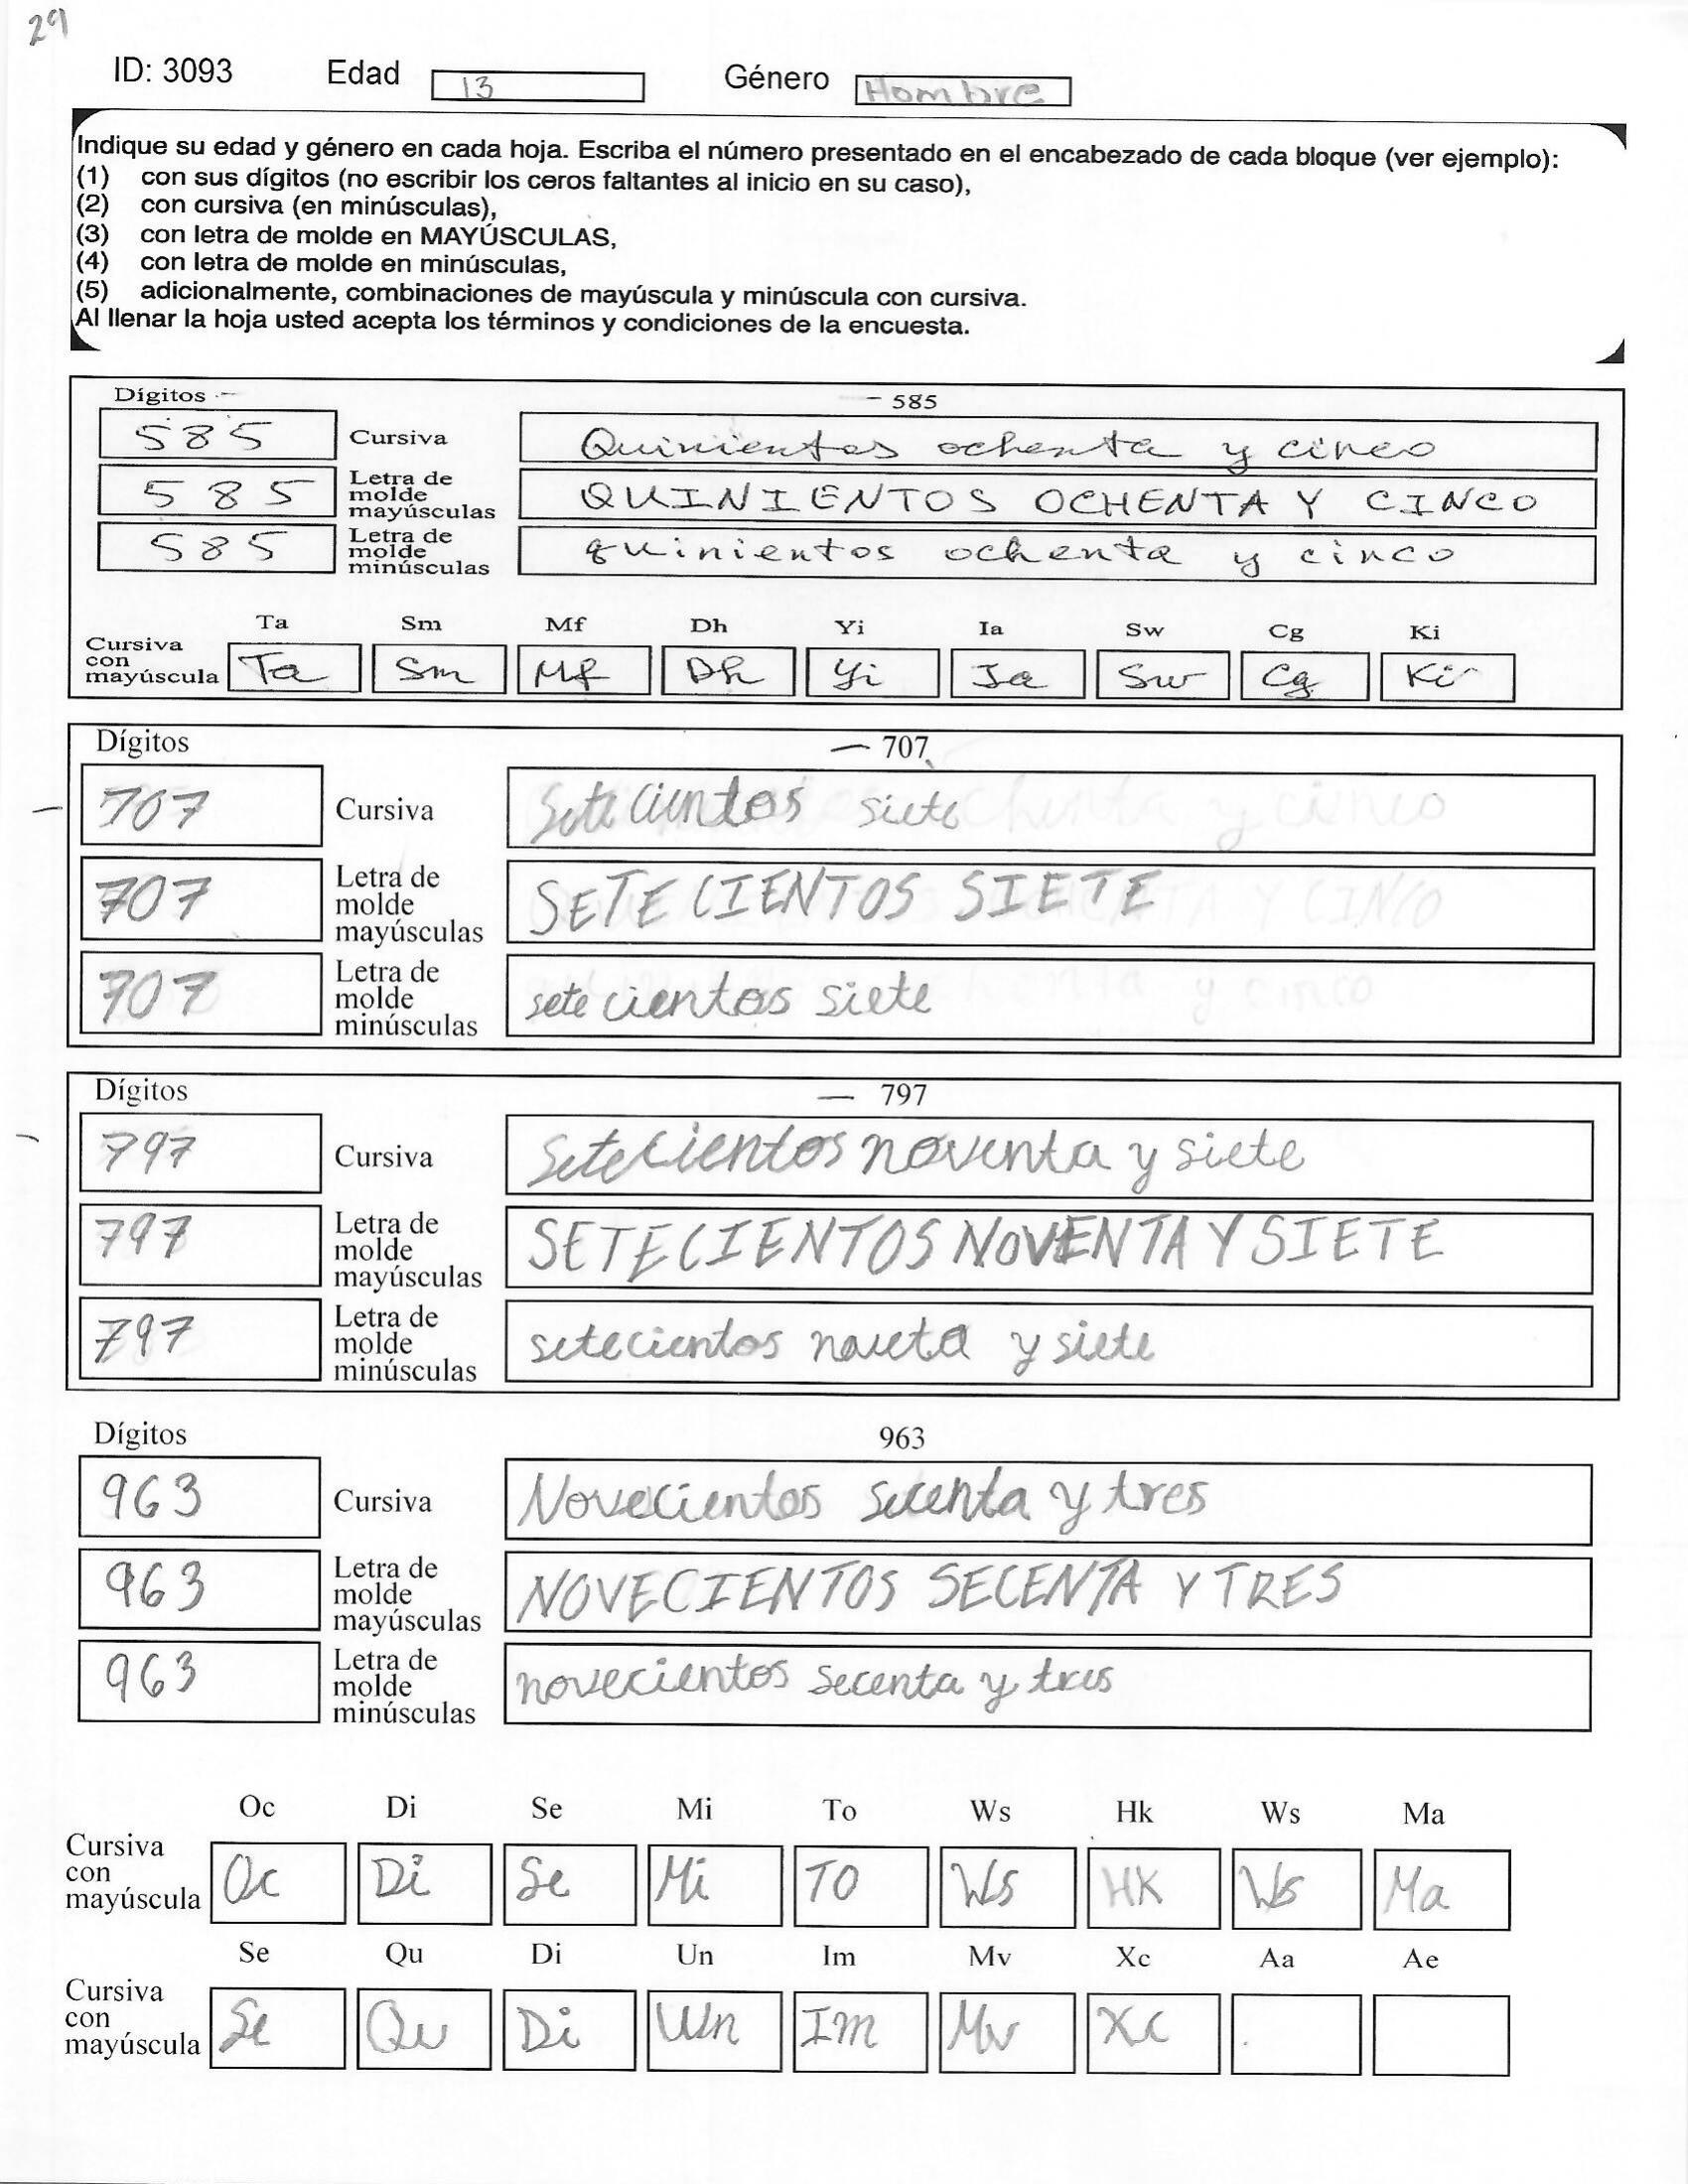 29
ID: 3093 Edad 13 Género Hombre
Indique su edad y género en cada hoja. Escriba el número presentado en el encabezado de cada bloque (ver ejemplo):
(1) con sus dígitos (no escribir los ceros faltantes al inicio en su caso),
(2) con cursiva (en minúsculas),
(3) con letra de molde en MAYÚSCULAS,
(4) con letra de molde en minúsculas,
(5) adicionalmente, combinaciones de mayúscula y minúscula con cursiva.
Al llenar la hoja usted acepta los términos y condiciones de la encuesta.
Dígitos 585
585 Cursiva Quinientos ochenta y cinco
585 Letra de molde mayúsculas QUINIENTOS OCHENTA Y CINCO
585 Letra de molde minúsculas quinientos ochenta y cinco
Ta Sm Mf Dh Yi Ia Sw Cg Ki
Cursiva con mayúscula Ta Sm Mf Dh Yi Ia Sw Cg Ki
Dígitos — 707
707 Cursiva Sete cientos siete
707 Letra de molde mayúsculas SETECIENTOS SIETE
707 Letra de molde minúsculas sete cientos siete
Dígitos — 797
797 Cursiva Setecientos noventa y siete
797 Letra de molde mayúsculas SETECIENTOS NOVENTA Y SIETE
797 Letra de molde minúsculas setecientos noveta y siete
Dígitos 963
963 Cursiva Novecientos secenta y tres
963 Letra de molde mayúsculas NOVECIENTOS SECENTA Y TRES
963 Letra de molde minúsculas novecientos secenta y tres
Oc Di Se Mi To Ws Hk Ws Ma
Cursiva con mayúscula Oc Di Se Mi TO Ws HK Ws Ma
Se Qu Di Un Im Mv Xc Aa Ae
Cursiva con mayúscula Se Qu Di Un Im Mv Xc